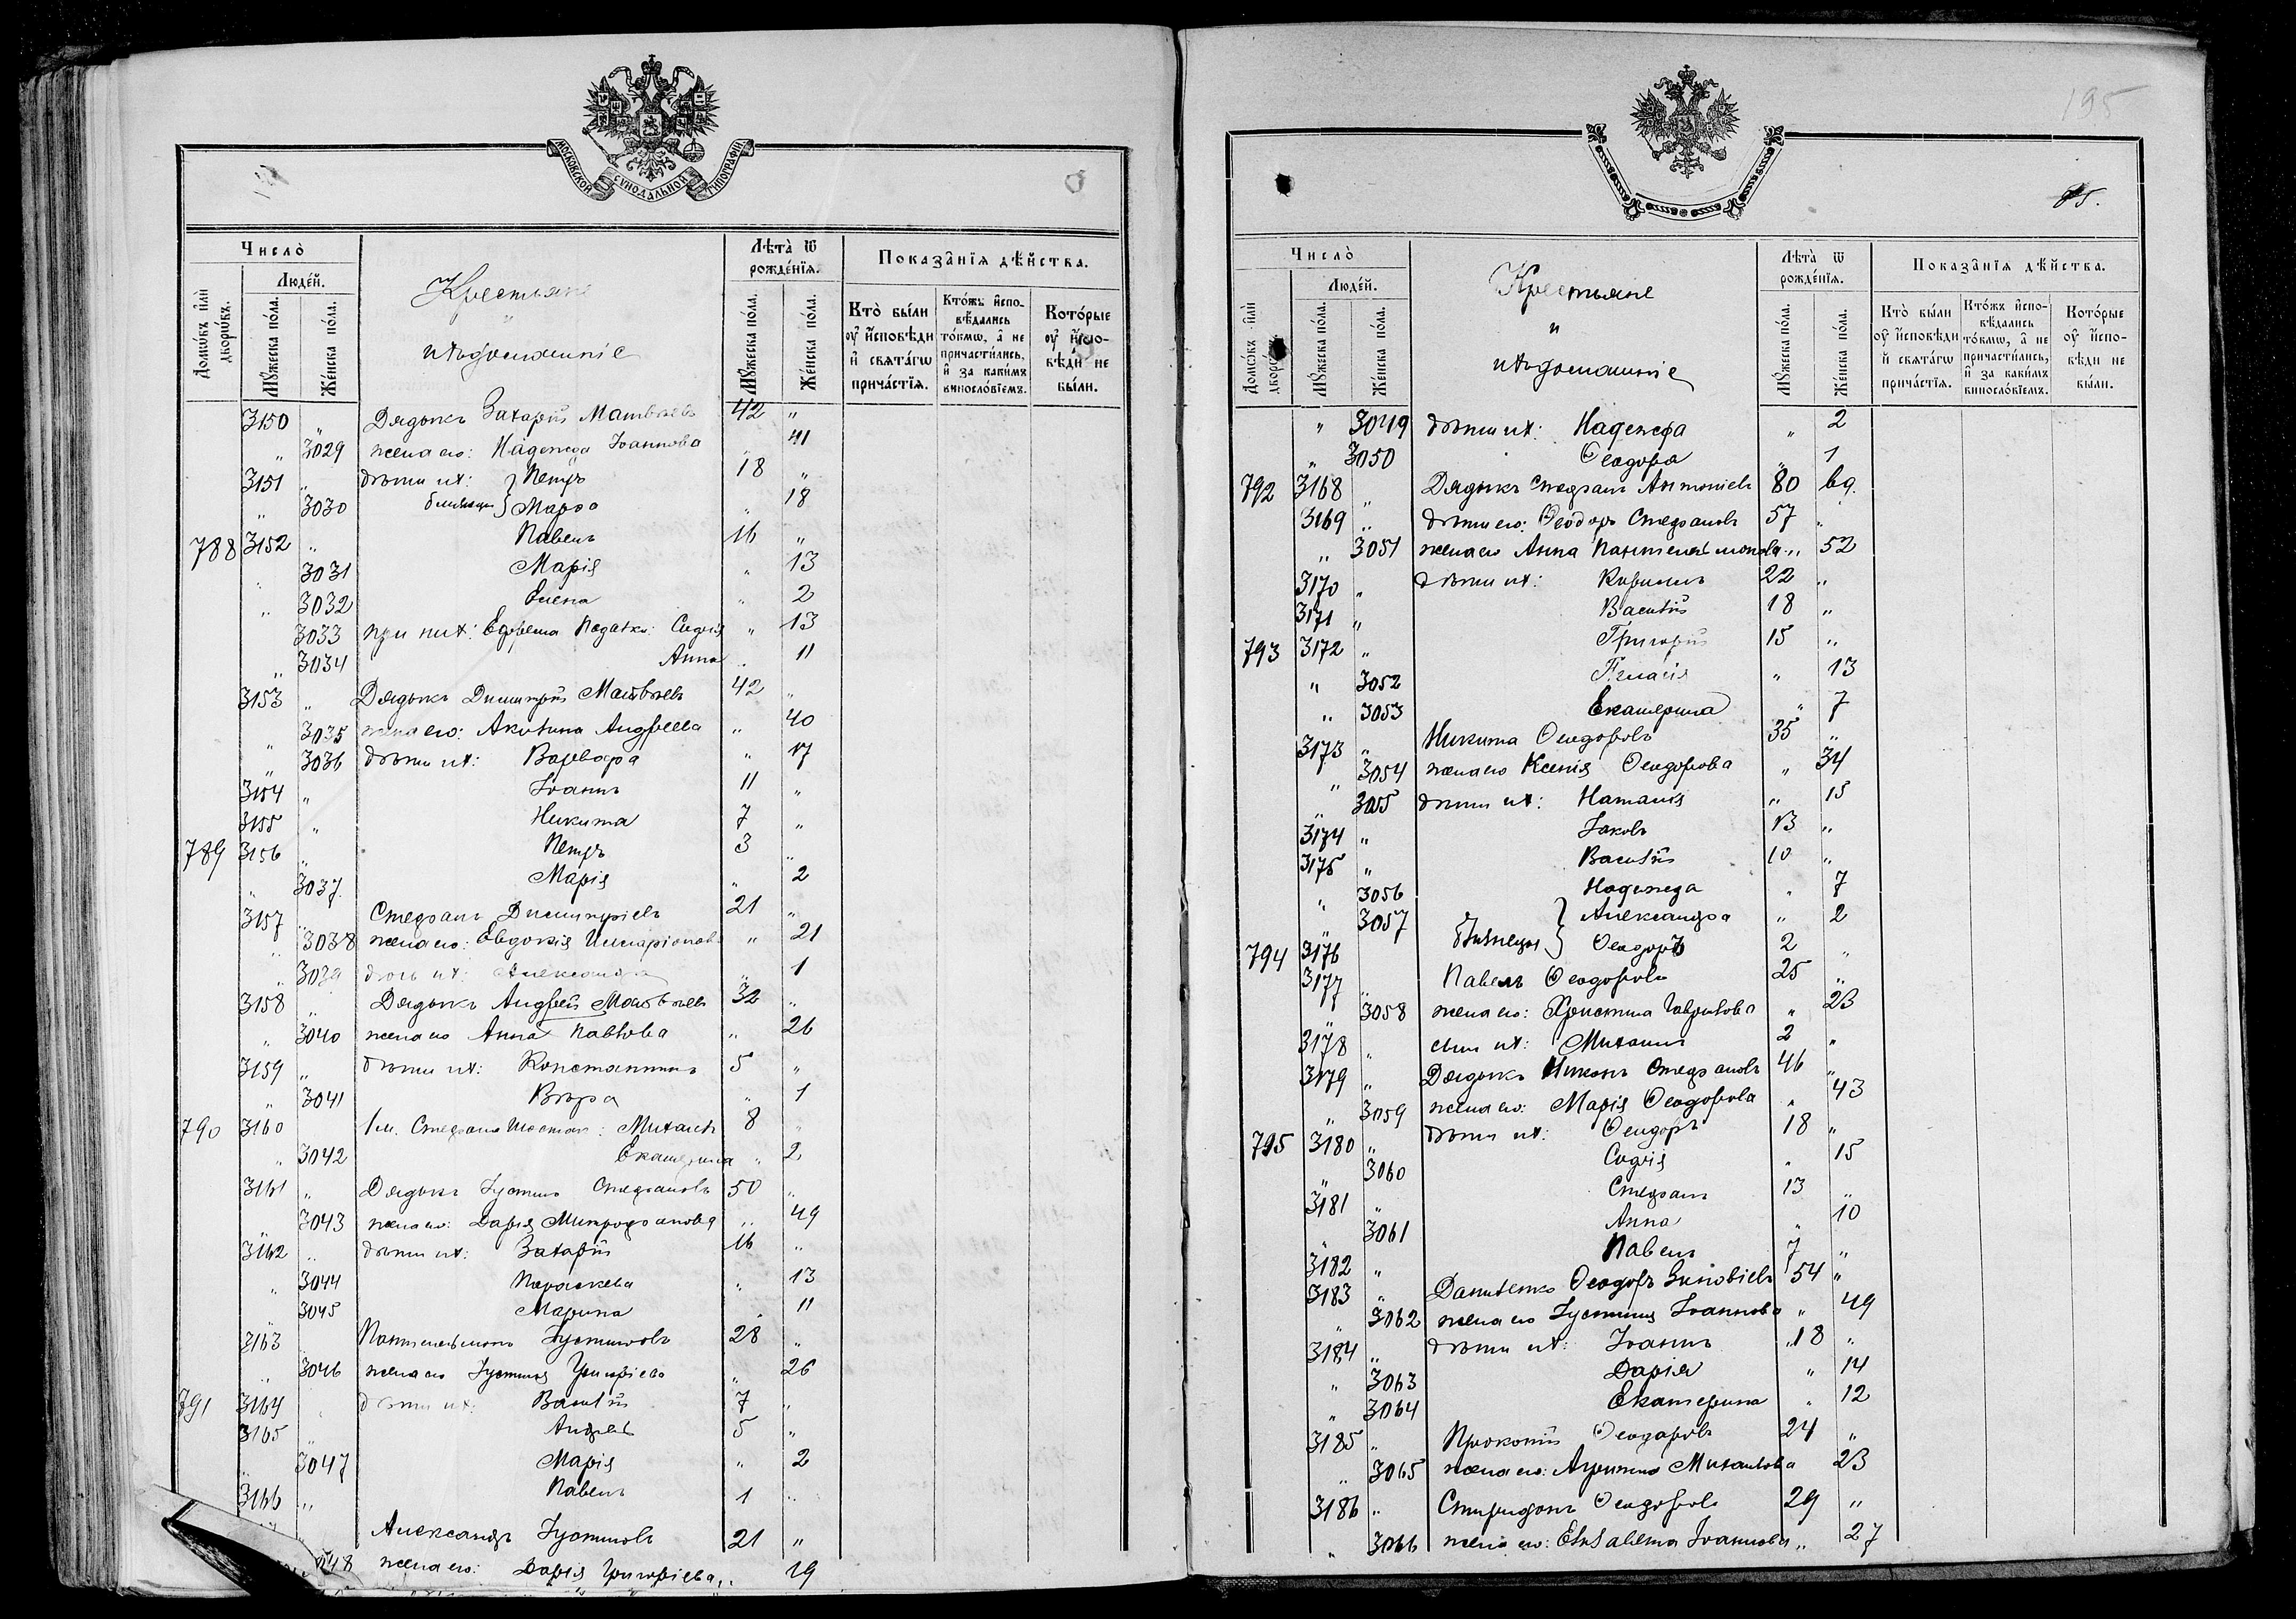 МОСКОВСКОЙ СѴНОДАЛЬНОЙ ТИПОГРАФІИ
Число̀
Домѡ́въ и҆лѝ дворѡ́въ.
Люде́й.
Мꙋ́жеска по́ла.
Же́нска по́ла.
Крестьяне
и
ихъ домашніе
Лѣ́та ѿ рожде́нїѧ.
Мꙋ́жеска по́ла.
Же́нска по́ла.
Показа̂нїѧ дѣ́йства.
Кто̀ бы́ли ᲂу҆ и҆сповѣ́ди и҆ свѧта́гѡ прича́стїѧ.
Кто́жъ и҆спо-вѣ́дались то́кмѡ, а҆ не причасти́лись, и҆ за каки́мъ винослов́їемъ.
Кото́рые ᲂу҆ и҆спо-вѣ́ди не бы́ли.
3150 „ Дядыкъ Захарій Матвѣевъ 42 „
„ 3029 жена его: Надежда Іоаннова „ 41
3151 „ дѣти ихъ: Петръ 18 „
„ 3030 близнецы Марѳа „ 18
788 3152 „ Павелъ 16 „
„ 3031 Марія „ 13
„ 3032 Елена „ 2
3033 при нихъ: Ефрема Софія „ 13
„ 3034 Анна „ 11
3153 „ Дядыкъ Димитрій Матвѣевъ 42 „
„ 3035 жена его: Акилина Андреева „ 40
„ 3036 дѣти ихъ: Варвара „ 17
3154 „ Іоаннъ 11 „
3155 „ Никита 7 „
789 3156 „ Петръ 3 „
„ 3037 Марія „ 2
3157 „ Стефанъ Димитріевъ 21 „
„ 3038 жена его: Евдокія Илларіонов „ 21
„ 3039 дочь ихъ: Александра „ 1
3158 „ Дядыкъ Андрей Матвѣевъ 32 „
„ 3040 жена его Анна Павлова „ 26
3159 „ дѣти ихъ: Константинъ 5 „
„ 3041 Вѣра „ 1
790 3160 Стефана Михаилъ 8 „
„ 3042 Екатерина „ 2
3161 „ Дядыкъ Іустинъ Стефановъ 50 „
„ 3043 жена его: Дарія Митрофанова „ 49
3162 „ дѣти ихъ: Захарій 16 „
„ 3044 Параскева „ 13
„ 3045 Марина „ 11
3163 Пантелеймонъ Іустиновъ 28 „
„ 3046 жена его Іустина Григоріева „ 26
791 3164 дѣти ихъ: Василій 7 „
3165 „ Андрей 5 „
„ 3047 Марія „ 2
3166 „ Павелъ 1 „
„ Александръ Іустиновъ 21 „
48 жена его: Дарія Григоріева „ 19
195
85.
Число̀
Домѡ́въ и҆лѝ дворѡ́въ.
Люде́й.
Мꙋ́жеска по́ла.
Же́нска по́ла.
Крестьяне
и
ихъ домашніе
Лѣ́та ѿ рожде́нїѧ.
Мꙋ́жеска по́ла.
Же́нска по́ла.
Показа̂нїѧ дѣ́йства.
Кто̀ бы́ли ᲂу҆ и҆сповѣ́ди и҆ свѧта́гѡ прича́стїѧ.
Кто́жъ и҆спо-вѣ́дались то́кмѡ, а҆ не причасти́лись, и҆ за каки́мъ винослов́їемъ.
Кото́рые ᲂу҆ и҆спо-вѣ́ди не бы́ли.
„ 3049 дѣти ихъ: Надежда „ 2
„ 3050 Ѳеодора „ 1
792 3168 „ Дядыкъ Стефанъ Антоніевъ 80 вд.
3169 „ дѣти его: Ѳеодоръ Стефановъ 57 „
„ 3051 жена его Анна Пантелеймонова „ 52
3170 „ дѣти ихъ: Кириллъ 22 „
3171 „ Василій 18 „
793 3172 „ Григорій 15 „
„ 3052 „ 13
„ 3053 Екатерина „ 7
3173 „ Никита Ѳеодоровъ 35 „
„ 3054 жена его Ксенія Ѳеодорова „ 34
„ 3055 дѣти ихъ: Наталія „ 15
3174 „ Іаковъ 13 „
3175 „ Василій 10 „
„ 3056 Надежда „ 7
„ 3057 близнецы Александра „ 2
794 3176 Ѳеодоръ 2 „
3177 „ Павелъ Ѳеодоровъ 25 „
„ 3058 жена его: Христина Гаврилова „ 23
3178 „ сынъ ихъ: Михаилъ 2 „
3179 „ Дядыкъ Никонъ Стефановъ 46 „
„ 3059 жена его: Марія Ѳеодорова „ 43
795 3180 „ дѣти ихъ: Ѳеодоръ 18 „
„ 3060 Софія „ 15
3181 „ Стефанъ 13 „
„ 3061 Анна „ 10
3182 „ Павелъ 7 „
3183 „ Даниленко Ѳеодоръ Зиновіевъ 54 „
„ 3062 жена его Іустина Іоаннова „ 49
3184 „ дѣти ихъ: Іоаннъ 18 „
„ 3063 Дарія „ 14
„ 3064 Екатерина „ 12
3185 „ Прокопій Ѳеодоровъ 24 „
„ 3065 жена его: Агрипина Михаилова 23
3186 „ Спиридонъ Ѳеодоровъ 29 „
„ 3066 жена его: Елисавета Іоаннова „ 27